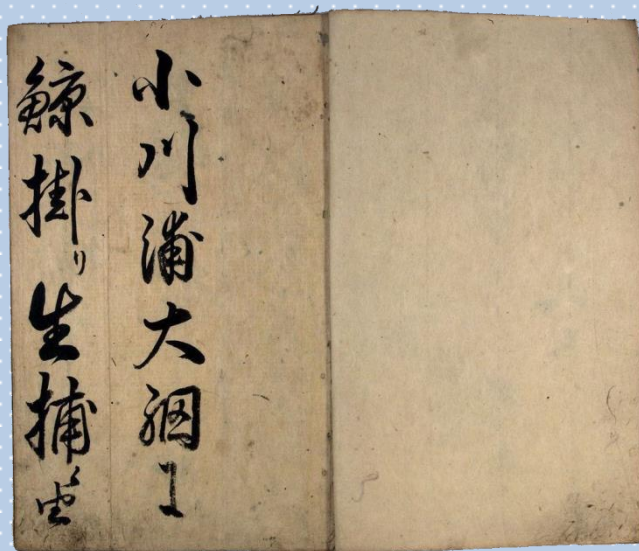 小川浦大網に
鯨掛り生捕